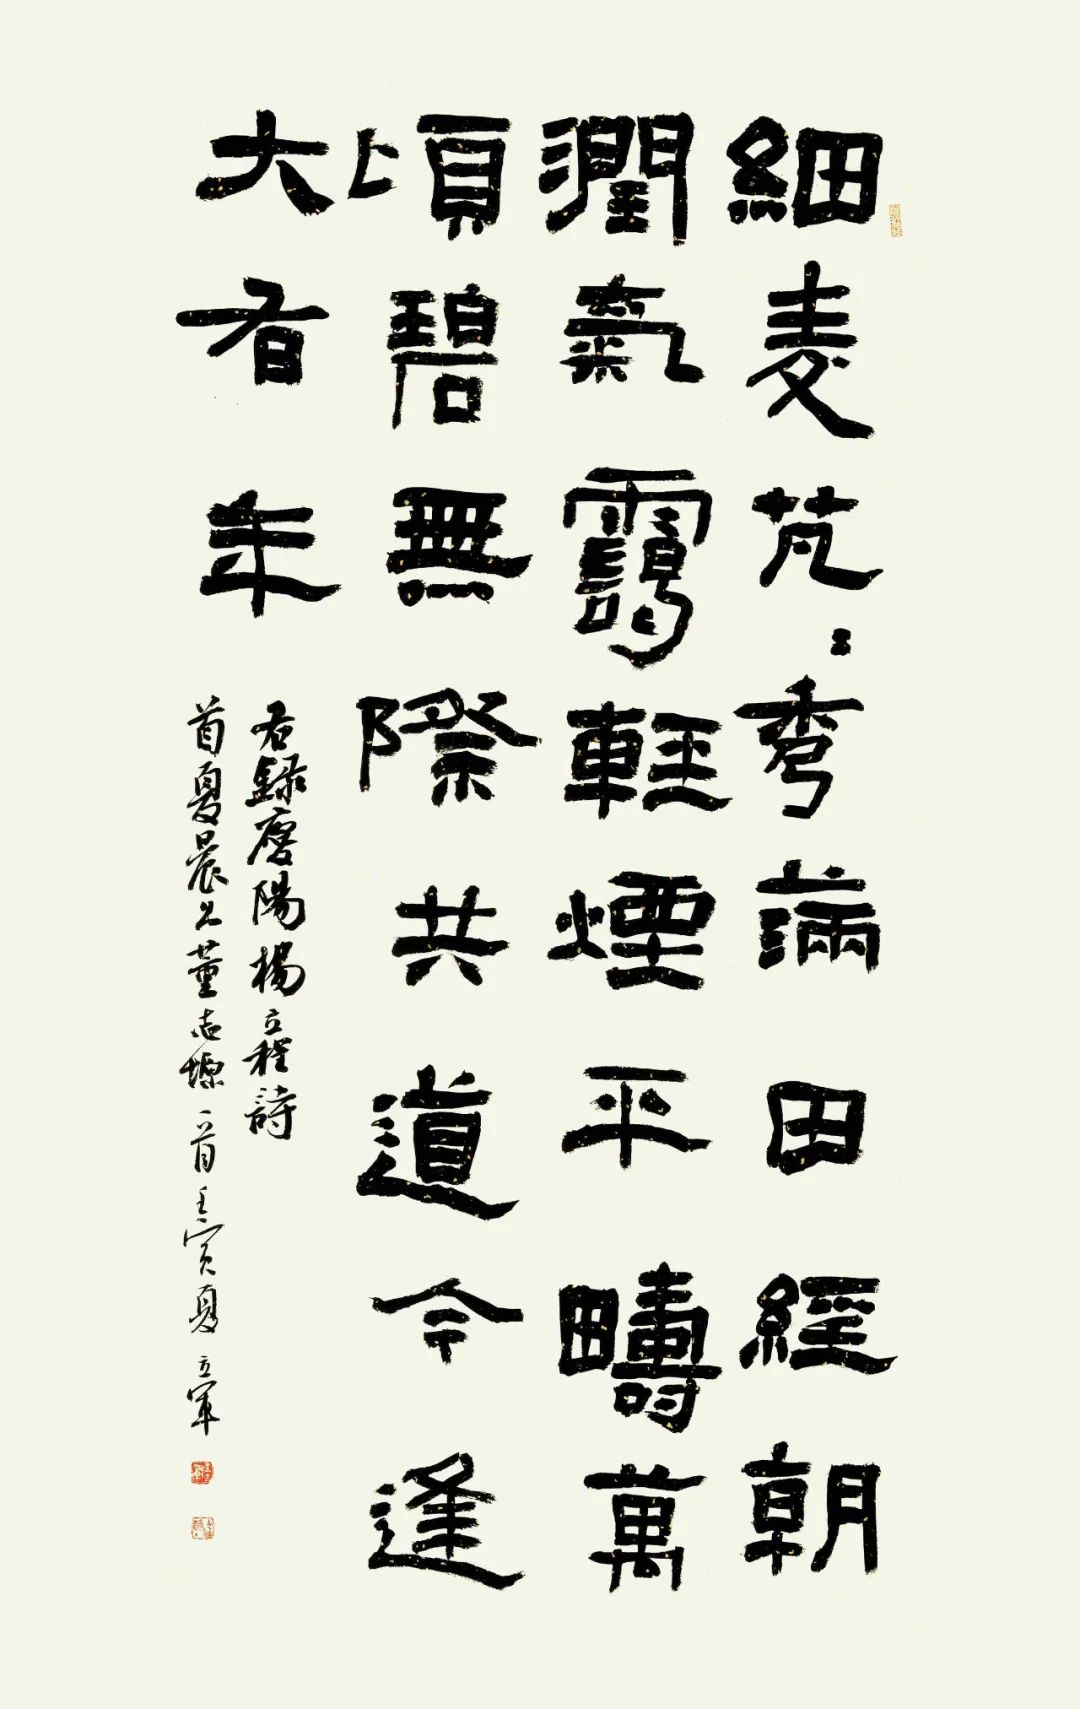 細麦芃々秀滿田經朝
潤氣靄輕煙平疇萬
頃碧無際共道今逢
大有年
右録慶陽楊立程詩
首夏晨出董志塬一首壬寅夏立軍